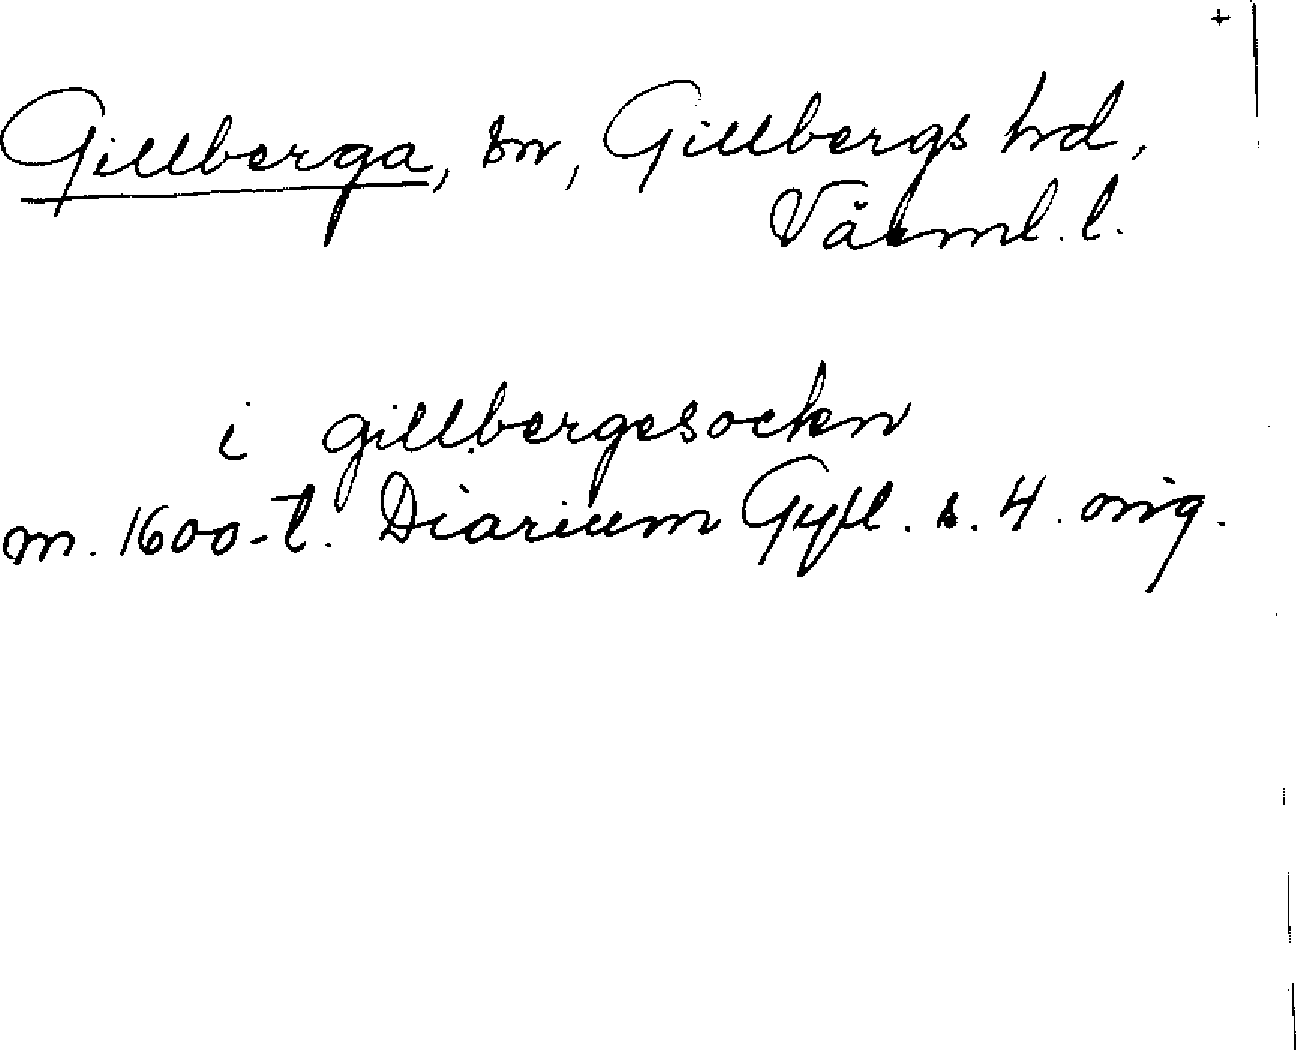 +
Gillberga, sn, Gillbergs hd,
Värml. l.
i gillbergesockn
m. 1600-t. Diarium Gyll. s. 4. orig.